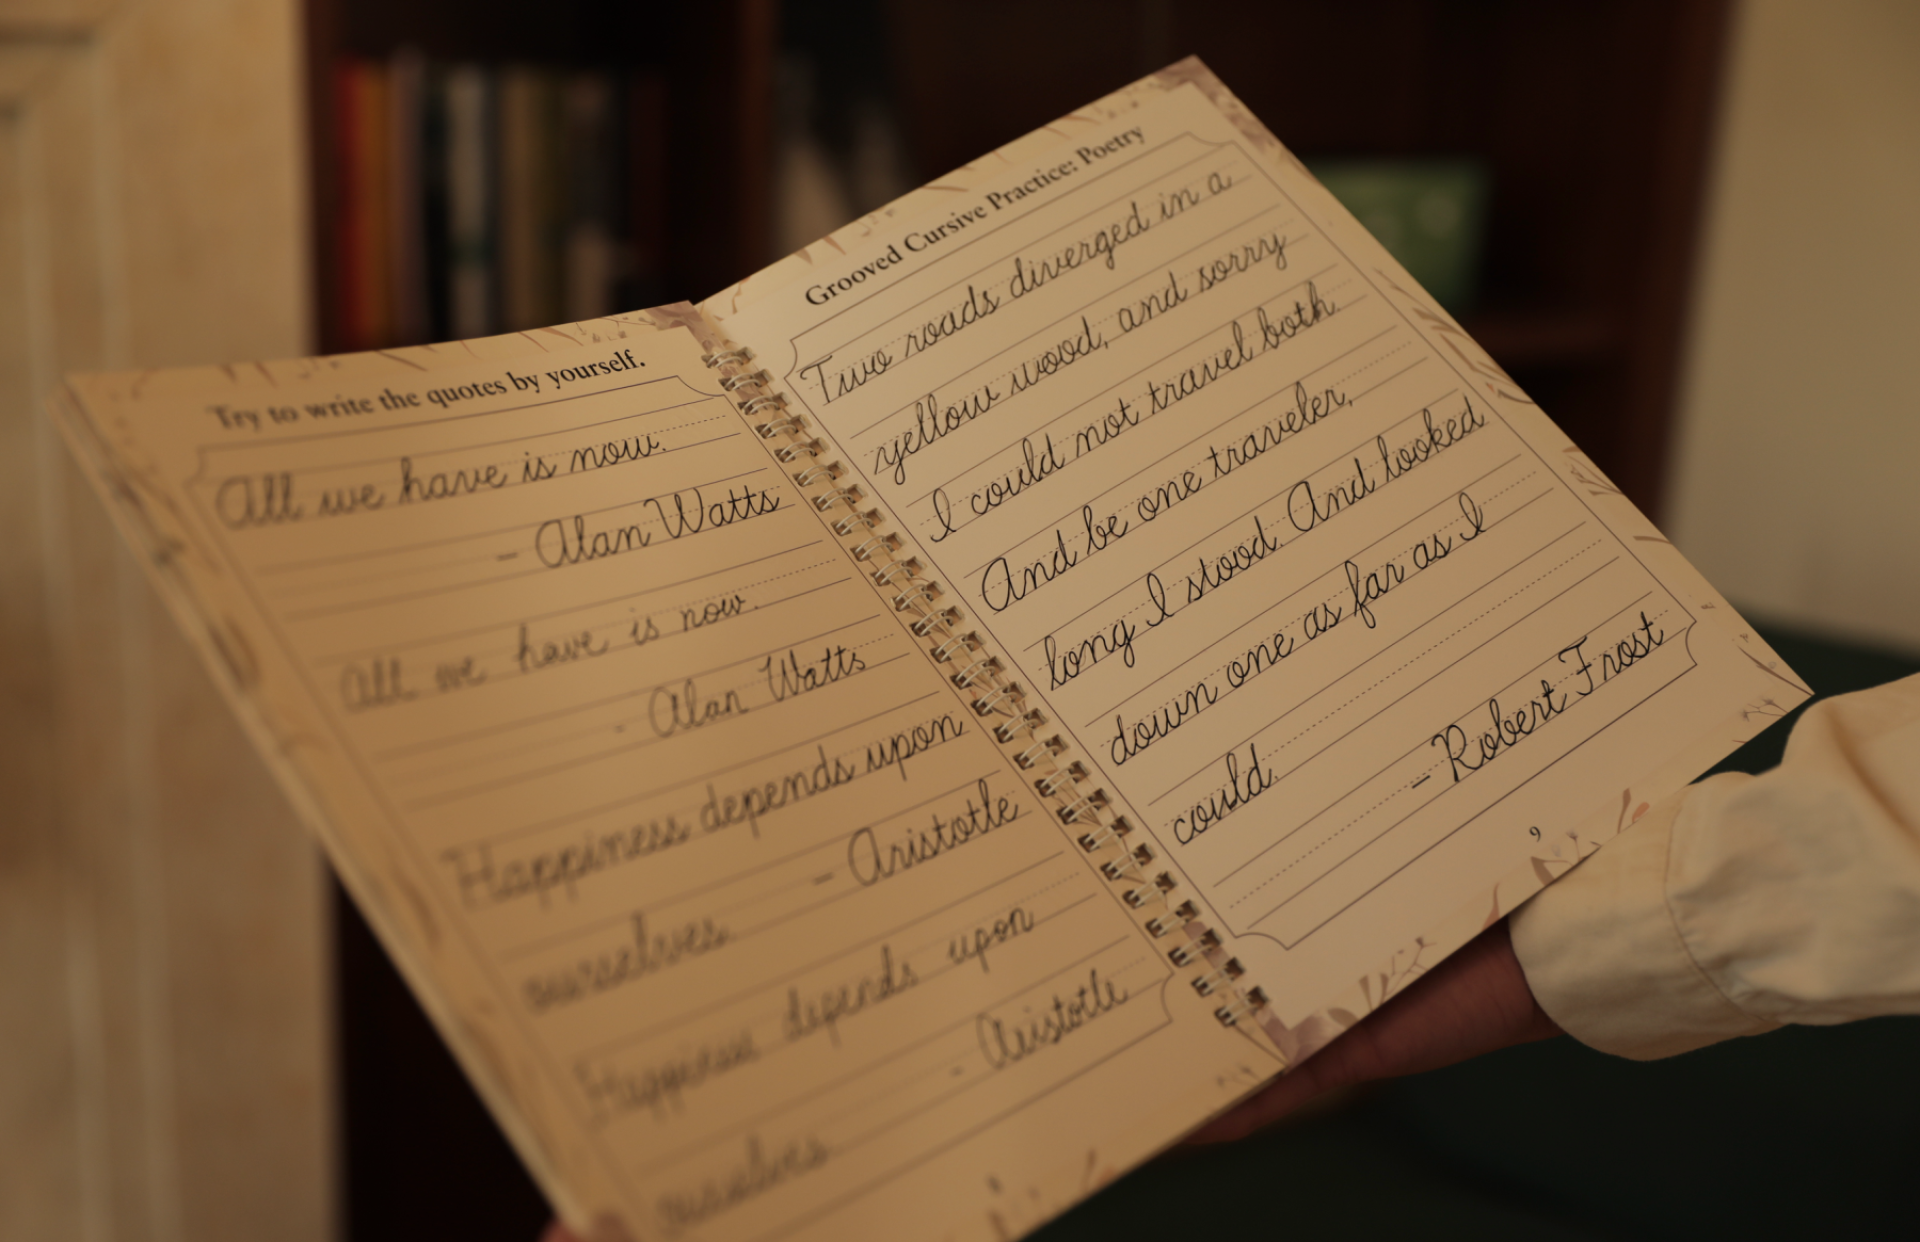 Try to write the quotes by yourself.
All we have is now.
- Alan Watts
All we have is now.
- Alan Watts
Happiness depends upon
ourselves. - Aristotle
Happiness depends upon
ourselves. - Aristotle
Grooved Cursive Practice: Poetry
Two roads diverged in a
yellow wood, and sorry
I could not travel both.
And be one traveler,
long I stood. And looked
down one as far as I
could.
- Robert Frost
9